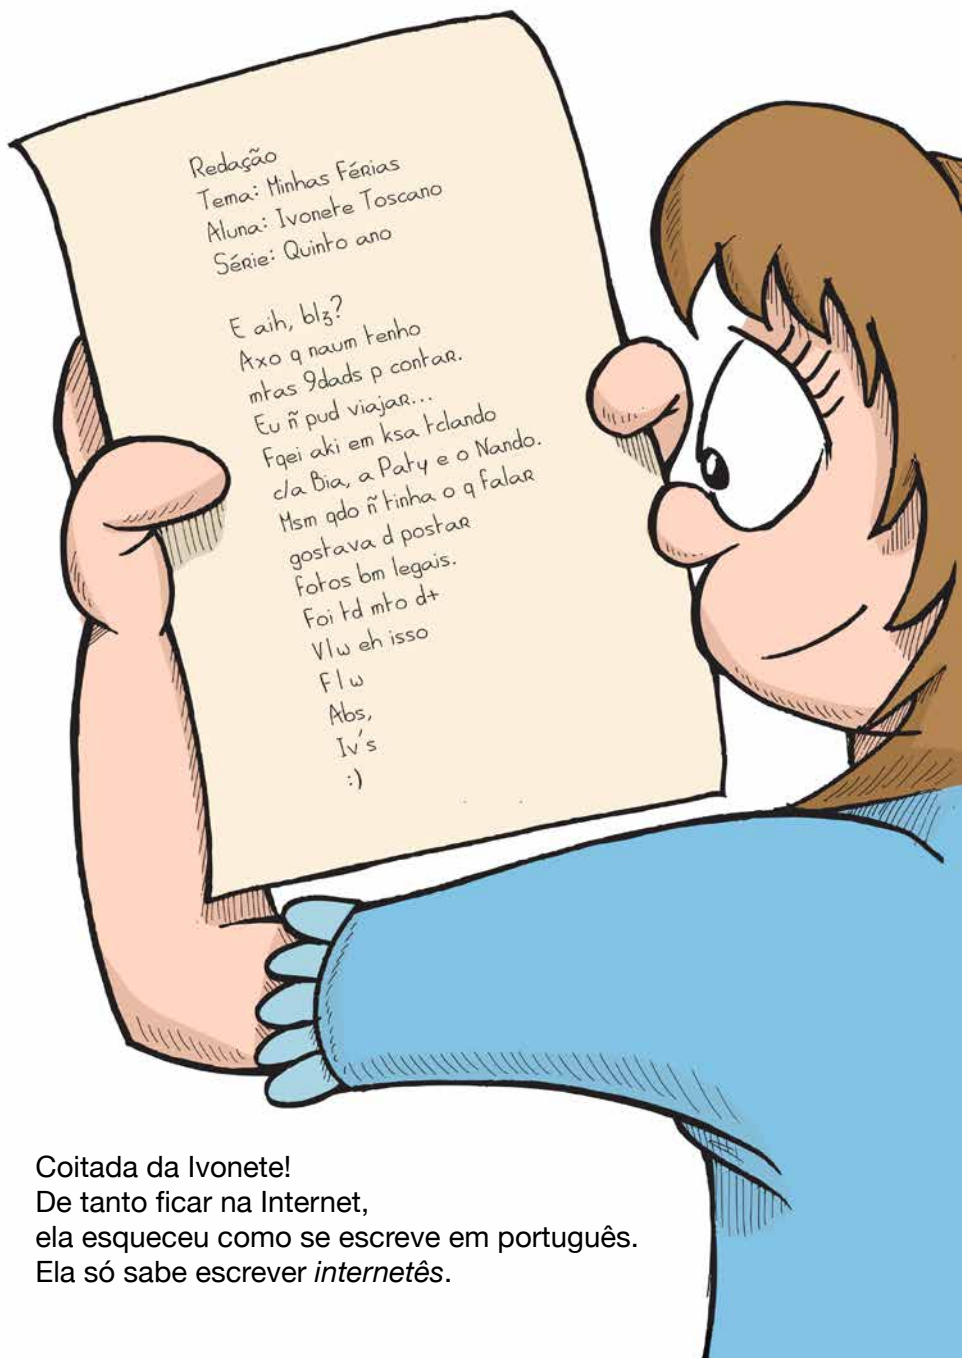 Redação
Tema: Minhas Férias
Aluna: Ivonete Toscano
Série: Quinto ano
E aih, blz?
Axo q naum tenho
mtas 9dads p contar.
Eu ñ pud viajar...
Fqei aki em ksa tclando
c/a Bia, a Paty e o Nando.
Msm qdo ñ tinha o q falar
gostava d postar
fotos bm legais.
Foi td mto d+
Vlw eh isso
Flw
Abs,
Iv's
:)
Coitada da Ivonete!
De tanto ficar na Internet,
ela esqueceu como se escreve em português.
Ela só sabe escrever internetês.